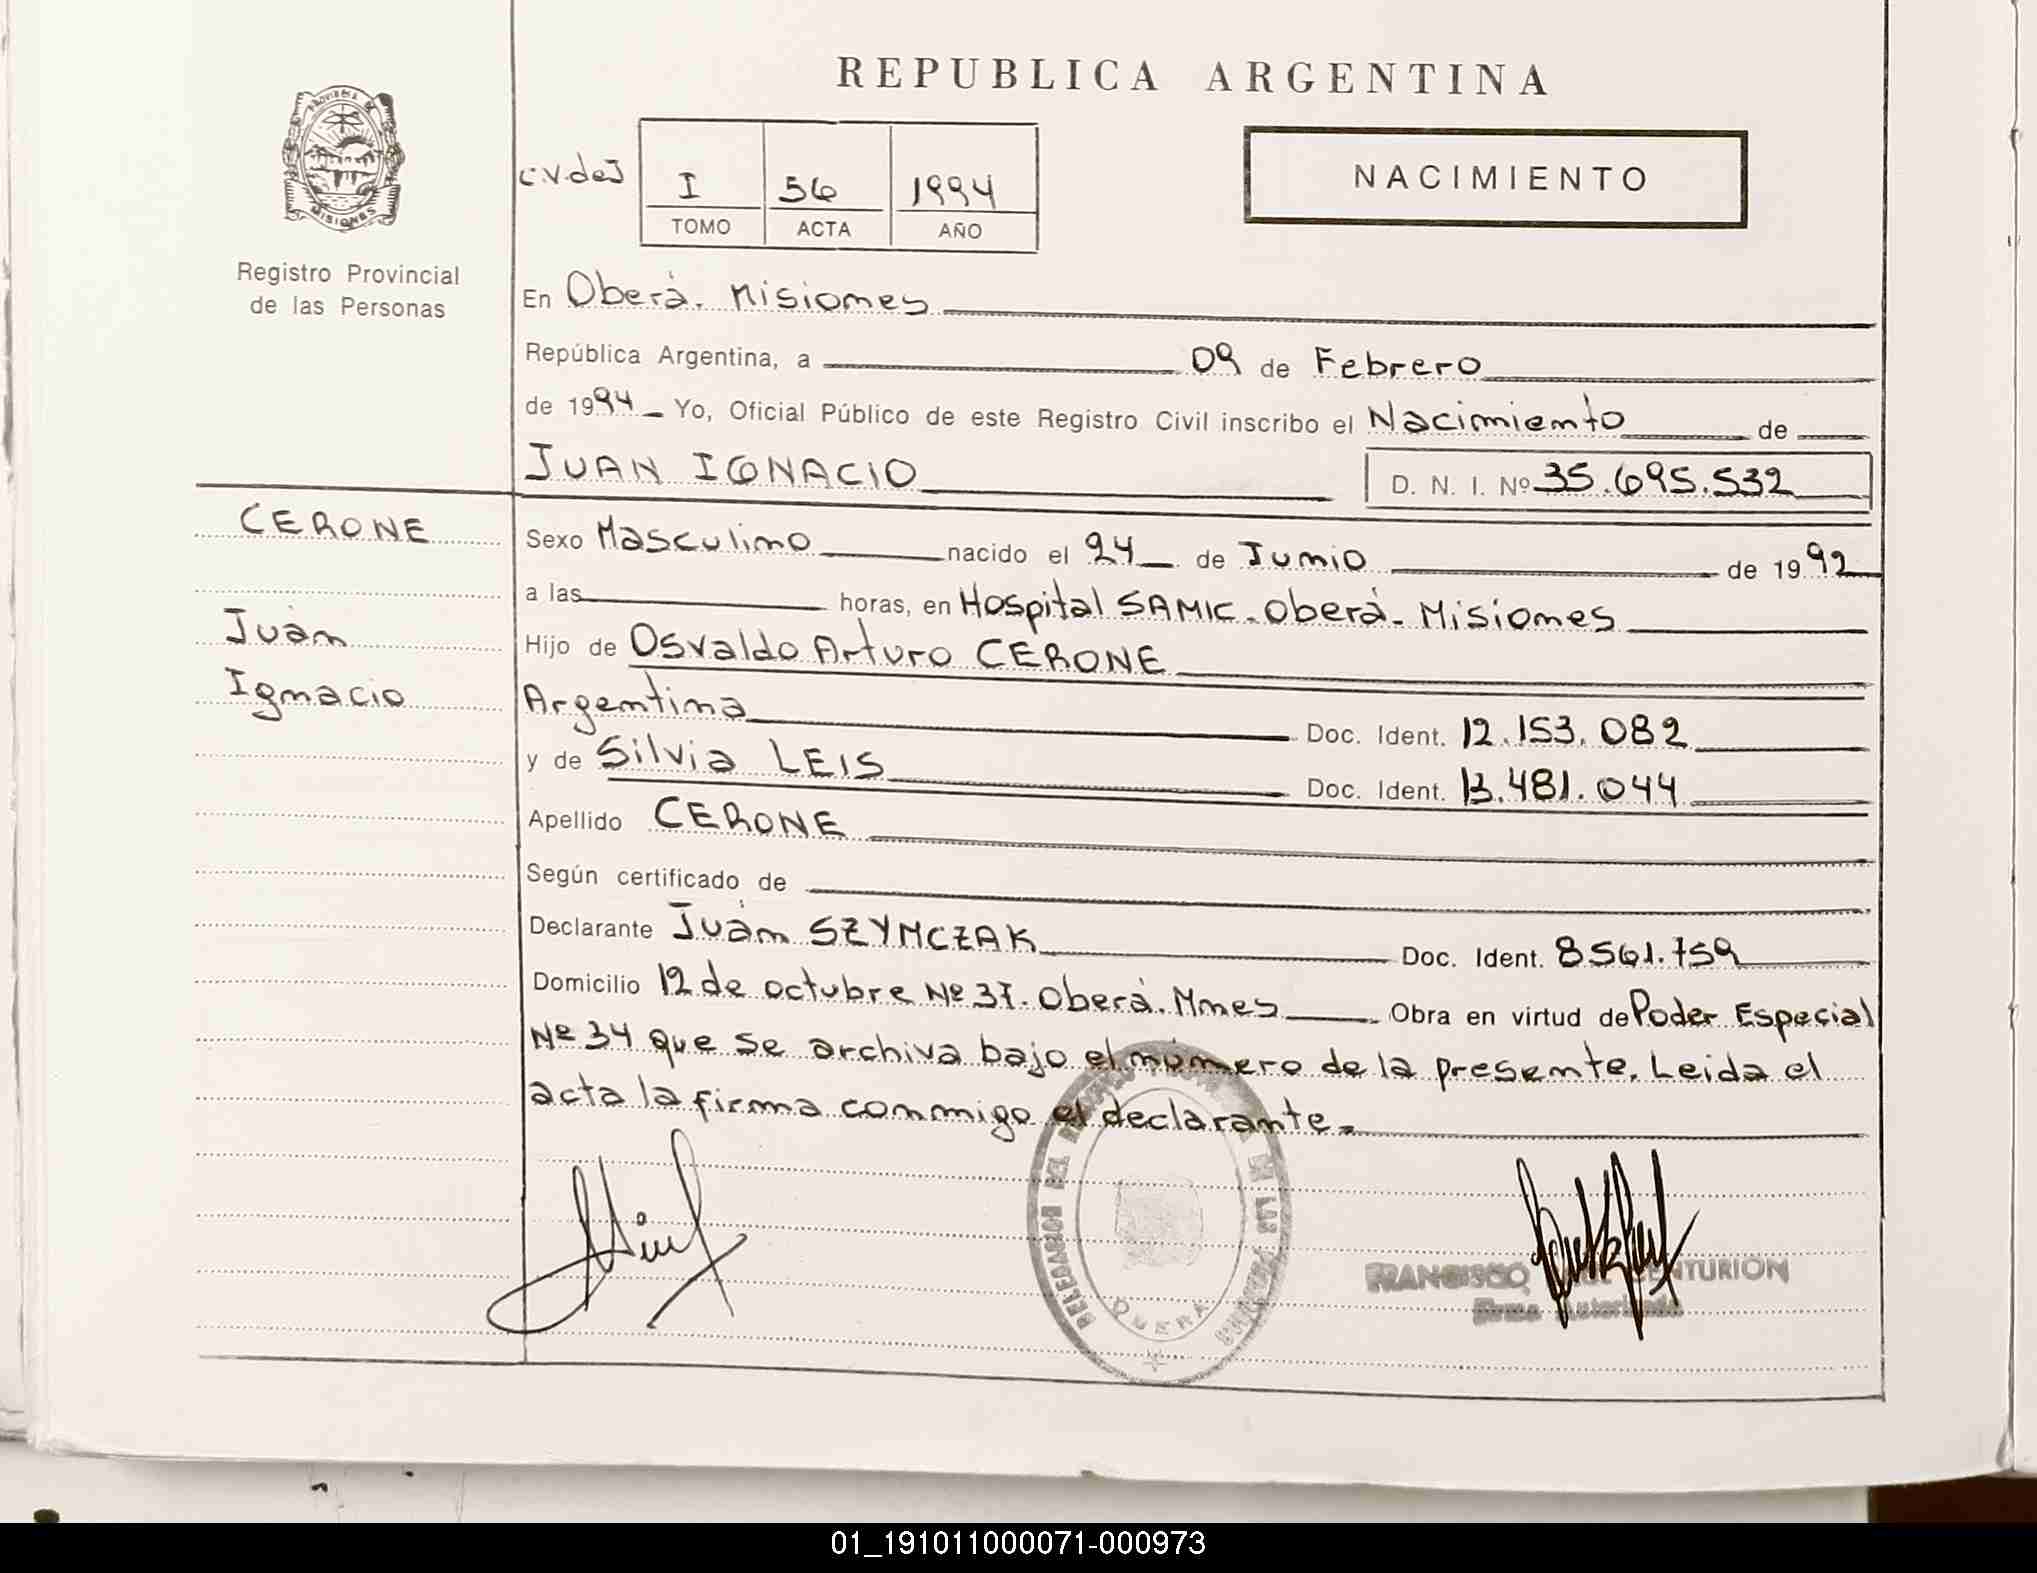 REPUBLICA ARGENTINA
PROVINCIA DE
MISIONES
Registro Provincial
de las Personas
I 56 1994
TOMO ACTA AÑO
NACIMIENTO
En Oberá. Misiones
República Argentina, a 09 de Febrero
de 1994 Yo, Oficial Público de este Registro Civil inscribo el Nacimiento de
JUAN IGNACIO D. N. I. Nº 35.695.532
CERONE
Juan
Ignacio
Sexo Masculino nacido el 24 de Junio de 1992
a las horas, en Hospital SAMIC. Oberá. Misiones
Hijo de Osvaldo Arturo CERONE
Argentina Doc. Ident. 12.153.082
y de Silvia LEIS Doc. Ident. 13.481.044
Apellido CERONE
Según certificado de
Declarante Juan SZYMCZAK Doc. Ident. 8561.759
Domicilio 12 de octubre Nº 37. Oberá. Mnes Obra en virtud de Poder Especial
Nº 34 que se archiva bajo el número de la presente. Leida el
acta la firma conmigo el declarante.
OBERA
FRANCISCO CENTURION
Firma Autorizada
01_191011000071-000973